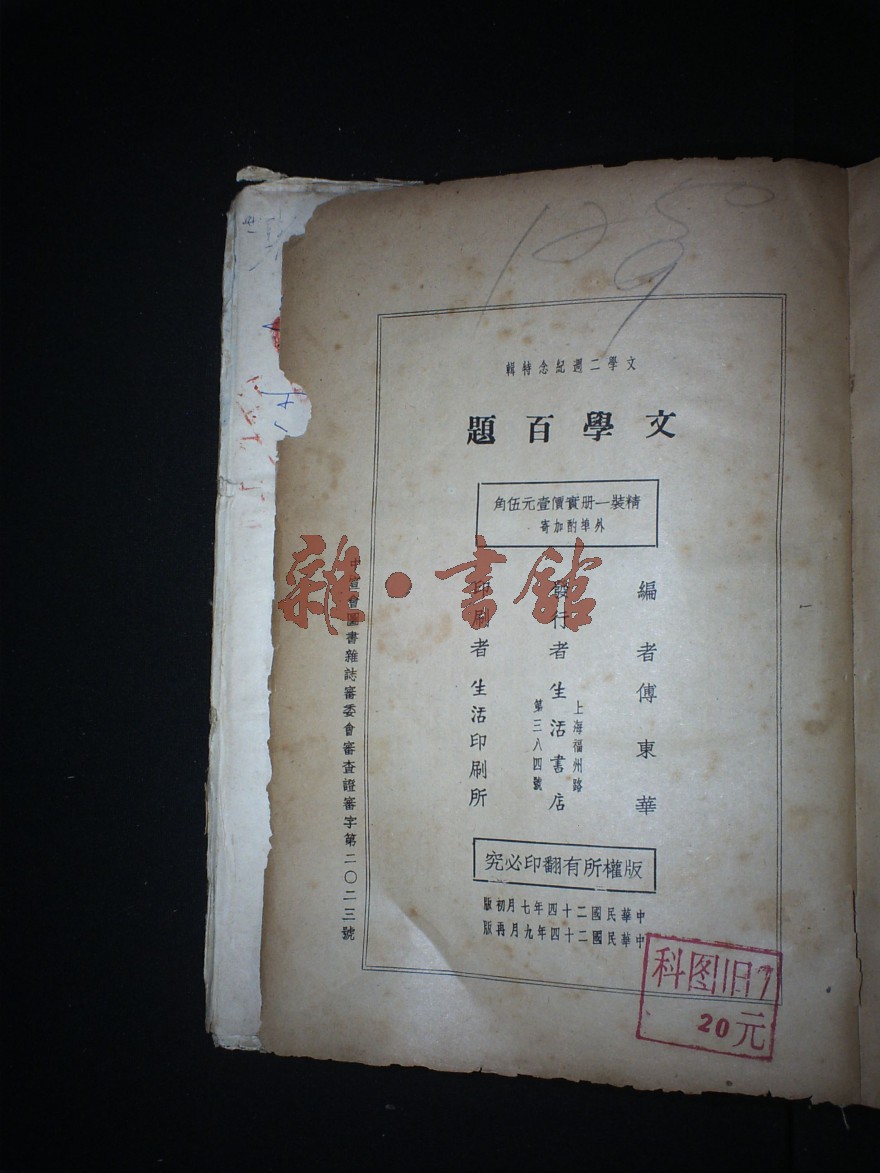 文學二週紀念特輯
文學百題
精裝一册實價壹元伍角
外埠酌加寄
編者傅東華
發行者生活書店
上海福州路
第三八四號
印刷者生活印刷所
版權所有翻印必究
中華民國二十四年七月初版
中華民國二十四年九月再版
中宣會圖書雜誌審委會審查證審字第二〇二三號
雜·書館
科图旧
20元